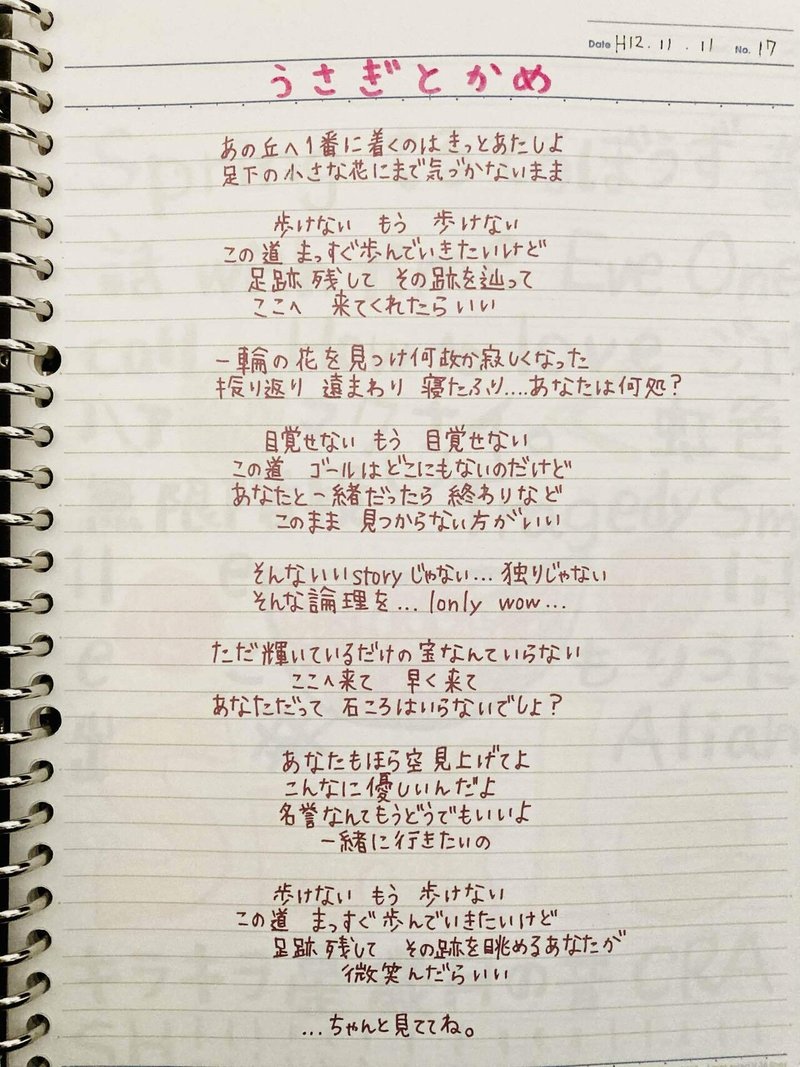 Date H12.11.11 No. 17
うさぎとかめ
あの丘へ1番に着くのはきっとあたしよ
足下の小さな花にまで気づかないまま
歩けない もう 歩けない
この道 まっすぐ歩んでいきたいけど
足跡 残して その跡を辿って
ここへ 来てくれたらいい
一輪の花を見つけ何故か寂しくなった
振り返り 遠まわり 寝たふり....あなたは何処?
目覚せない もう 目覚せない
この道 ゴールはどこにもないのだけど
あなたと一緒だったら 終わりなど
このまま 見つからない方がいい
そんないいstoryじゃない... 独りじゃない
そんな論理を... lonly wow...
ただ輝いているだけの宝なんていらない
ここへ来て 早く来て
あなただって 石ころはいらないでしょ?
あなたもほら空見上げてよ
こんなに優しいんだよ
名誉なんてもうどうでもいいよ
一緒に行きたいの
歩けない もう 歩けない
この道 まっすぐ歩んでいきたいけど
足跡 残して その跡を眺めるあなたが
微笑んだらいい
...ちゃんと見ててね。